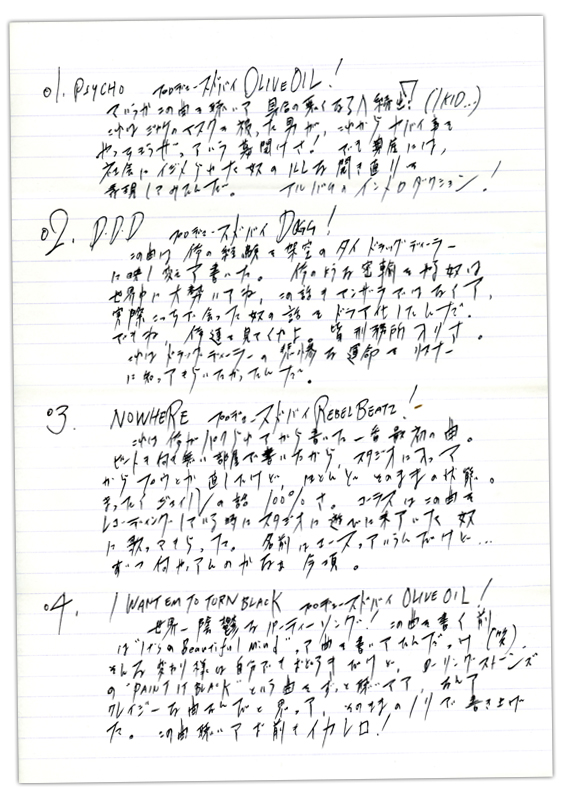 01. PSYCHO プロデュースドバイ OLIVE OIL!
ていうかこの曲を聴いて具合の悪くなる人続出! (KID..)
これはジャグのマスクの被った男が、これからヤバイ事を
やっちまうぜ、っていう幕開けさ! でも実際には、
社会にイジメられた奴の ILL な開き直りを
表現してみたんだ。 アルバムのイントロダクション!
02. D.D.D プロデュースドバイ DOGG!
この曲は俺の経験を架空のタイ ドラッグディーラー
に映し変えて書いた。 俺のような密輸をやる奴は
世界中に大勢いてね、この話はマンザラではなくて、
実際にこっちで会った奴の話をドラマ化したんだ。
でもね、俺達を見てくれよ 皆刑務所オリさ。
これはドラッグディーラーの悲惨な運命をリスナー
に知ってもらいたかったんだ。
03. NOWHERE プロデュースドバイ REBEL BEATZ!
これは俺がパクられてから書いた一番最初の曲。
ビートも何も無い部屋で書いたから、スタジオに入って
からフロウとか直したけど、ほとんどそのままの状態。
まったくジェイルの話 100%さ。 コーラスはこの曲を
レコーディングしている時にスタジオに遊びに来ていた奴
に歌ってもらった。 名前はコースっていうんだけど...
ずっと何やってんのかなぁ 今頃。
04. I WANT EM TO TURN BLACK プロデュースドバイ OLIVE OIL!
世界一陰鬱なパーティーソング! この曲を書く前
は "Beautiful Mind" って曲を書いてたんだっけ(笑)
そんな変わり様は自分でもおどろきだけど、ローリングストーンズ
の "PAINT IT BLACK" という曲をずっと聴いてて、なんて
クレイジーな曲なんだと思って、そのままのノリで書き上げ
た。 この曲聴いてお前もイカレロ!